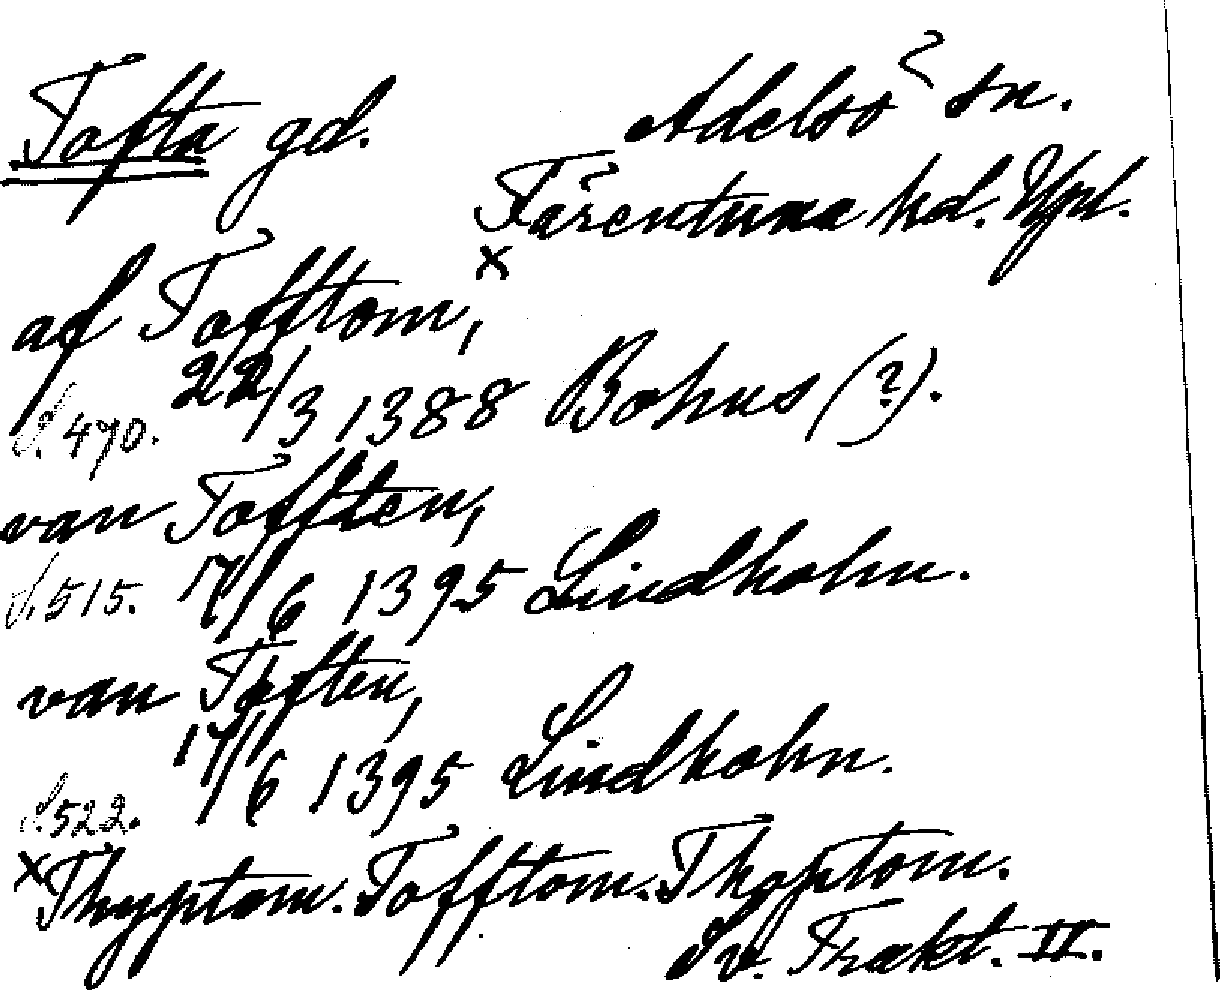 Tofta gd. Adelsö? sn.
Färentuna? hd. Upl.
af Tofftom,×
22/3 1388 Bohus (?).
S. 470.
van Tofften,
S. 515. 17/6 1395 Lindholm.
van Toften,
17/6 1395 Lindholm.
S. 522.
×Thyptom. Tofftom. Thoptom.
Sv. Trakt. II.